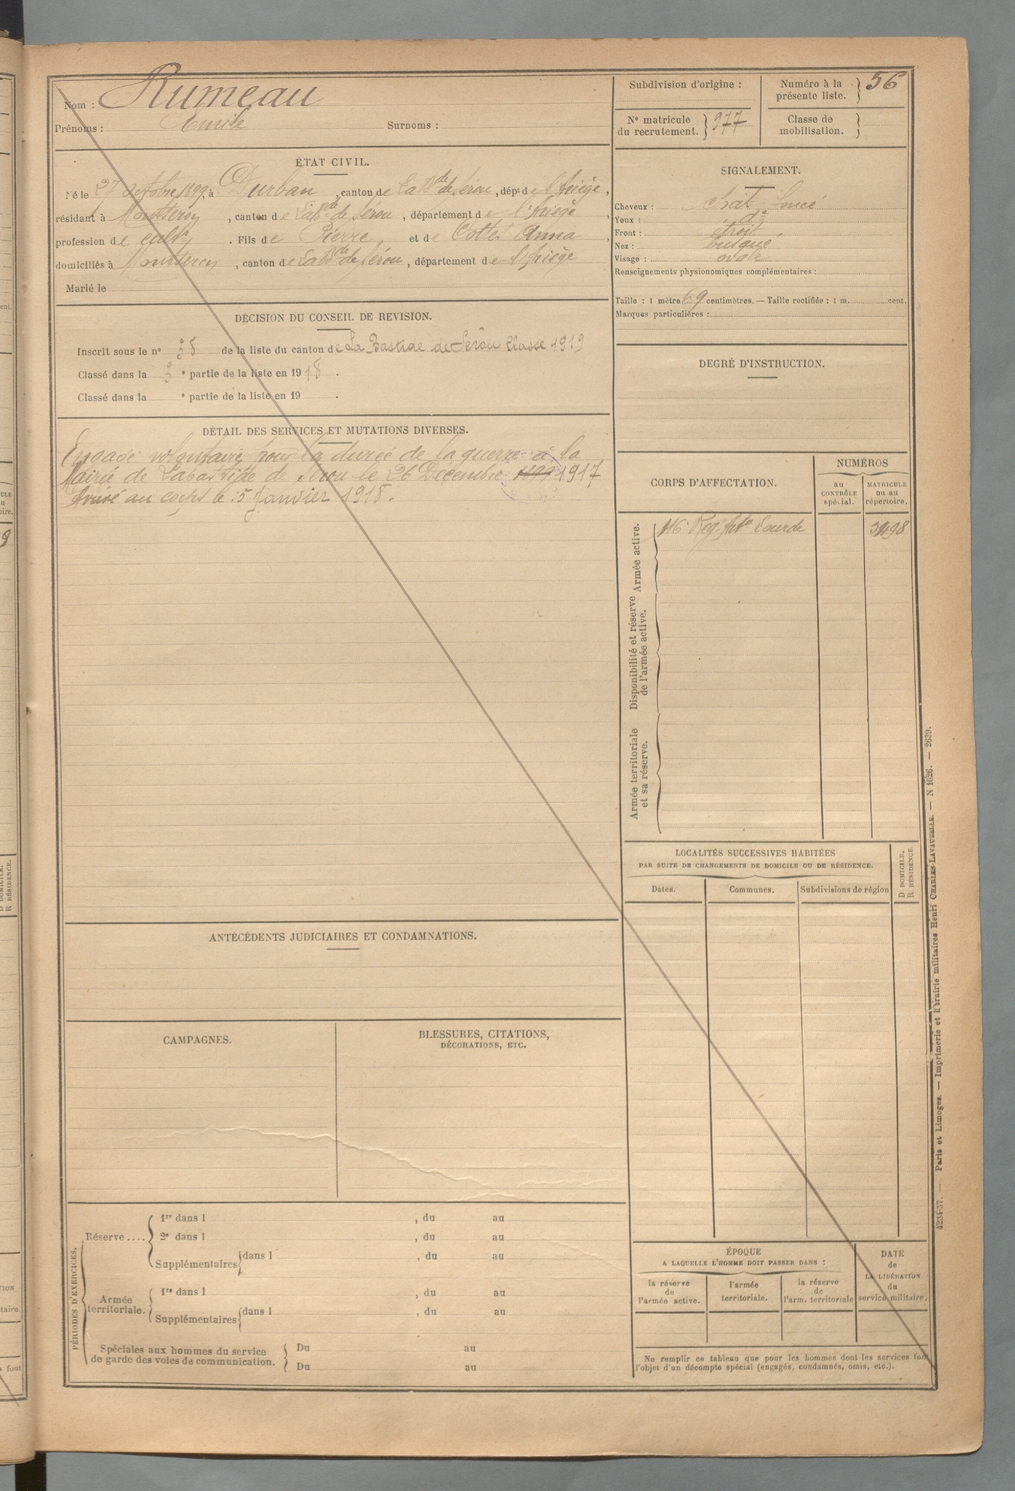 Nom : Rumeau
Prénoms : Emile Surnoms :
Subdivision d'origine :
Numéro à la présente liste. } 56
N° matricule du recrutement. } 977
Classe de mobilisation. }
ÉTAT CIVIL.
Né le 27 octobre 1899, à Durban, canton de La Bde de Sérou, dépt de l'Ariège,
résidant à , canton de Labde de Sérou, département de l'Ariège
profession de cultr. Fils de Pierre, et de Anna,
domiciliés à , canton de La Bde de Sérou, département de l'Ariège
Marié le
SIGNALEMENT.
Cheveux : chât. foncé
Yeux : do
Front : étroit
Nez : busqué
Visage : ovale
Renseignements physionomiques complémentaires :
Taille : 1 mètre 69 centimètres. — Taille rectifiée : 1 m. cent.
Marques particulières :
DÉCISION DU CONSEIL DE REVISION.
Inscrit sous le n° 38 de la liste du canton de La Bastide de Sérou Classe 1919
Classé dans la 3e partie de la liste en 1918.
Classé dans la e partie de la liste en 19 .
DEGRÉ D'INSTRUCTION.
DÉTAIL DES SERVICES ET MUTATIONS DIVERSES.
Engagé volontaire pour la durée de la guerre à la
Mairie de Labastide de Sérou le 26 Décembre 1899 1917
Arrivé au corps le 5 Janvier 1918.
CORPS D'AFFECTATION.
NUMÉROS
au CONTRÔLE spécial.
MATRICULE ou au répertoire.
Armée active.
116e Reg. Artie Lourde
Disponibilité et réserve de l'armée active.
Armée territoriale et sa réserve.
LOCALITÉS SUCCESSIVES HABITÉES
PAR SUITE DE CHANGEMENTS DE DOMICILE OU DE RÉSIDENCE.
Dates. Communes. Subdivisions de région
D DOMICILE.
R RÉSIDENCE.
ANTÉCÉDENTS JUDICIAIRES ET CONDAMNATIONS.
CAMPAGNES.
BLESSURES, CITATIONS,
DÉCORATIONS, ETC.
PÉRIODES D'EXERCICES.
Réserve....
1re dans l , du au
2e dans l , du au
Supplémentaires { dans l , du au
Armée territoriale.
1re dans l , du au
Supplémentaires { dans l , du au
Spéciales aux hommes du service
de garde des voies de communication.
Du au
Du au
ÉPOQUE
A LAQUELLE L'HOMME DOIT PASSER DANS :
la réserve de l'armée active.
l'armée territoriale.
la réserve de l'arm. territoriale
DATE de LA LIBÉRATION du service militaire.
Ne remplir ce tableau que pour les hommes dont les services font
l'objet d'un décompte spécial (engagés, condamnés, omis, etc.).
4234-37. — Paris et Limoges. — Imprimerie et librairie militaires Henri CHARLES-LAVAUZELLE. — N 1026. — 2639.